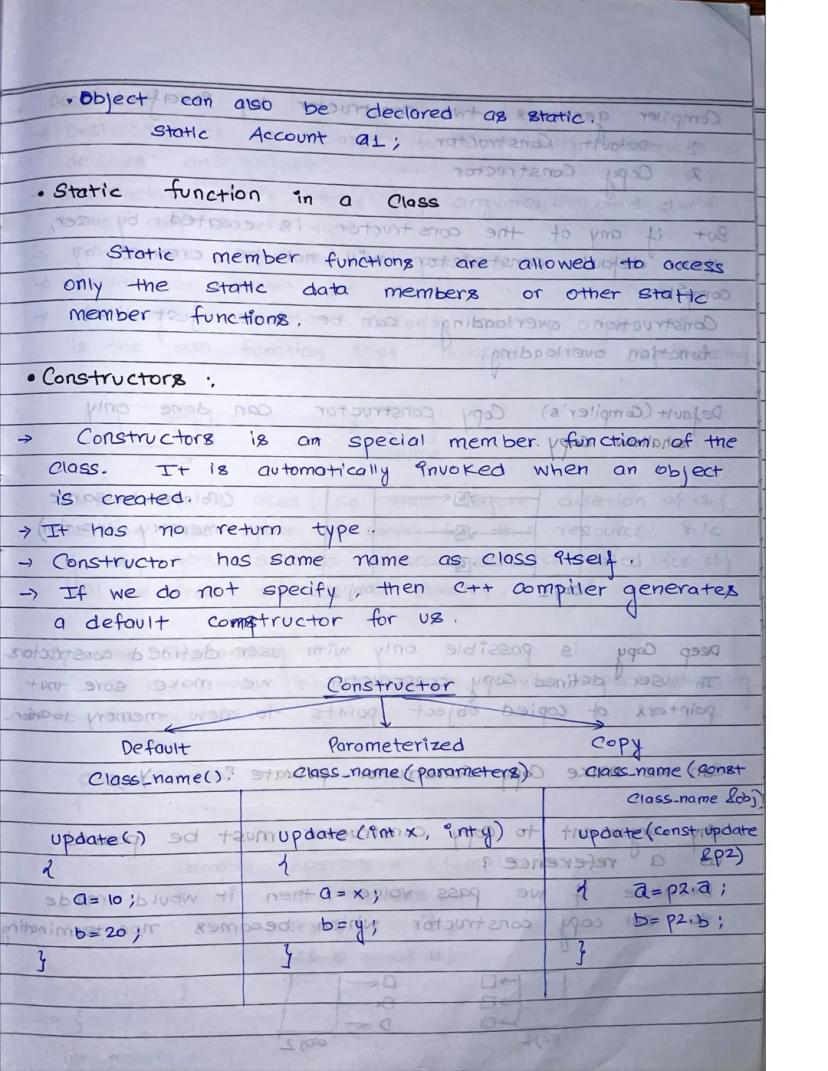 • Object can also be declared as static.
Static Account a1;
• Static function in a Class
Static member functions are allowed to access
only the static data members or other static
member functions.
• Constructors :
→ Constructors is an special member function of the
class. It is automatically invoked when an object
is created.
→ It has no return type.
→ Constructor has same name as class itself.
→ If we do not specify, then C++ compiler generates
a default constructor for us.
Constructor
Default Parameterized Copy
Class_name() Class_name(parameters) class_name (const
Class_name &obj)
update() update (int x, int y) update (const update
&p2)
{ { { a=p2.a;
a=10; a=x; b=p2.b;
b=20; b=y; }
} }